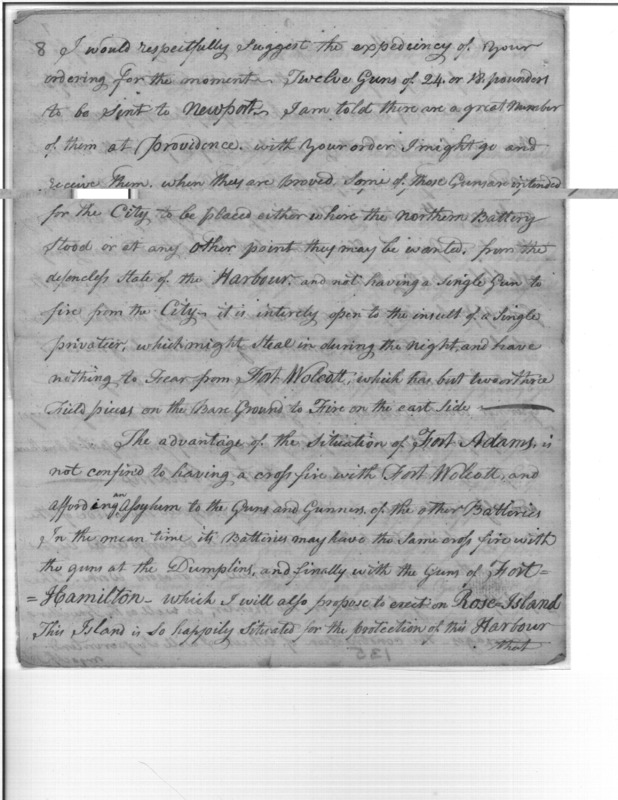 8 I would respectfully Suggest the expediency of Your
ordering for the moment Twelve Guns of 24. or 18. pounders
to be Sent to Newport. I am told there are a great Number
of them at Providence. with Your order I might go and
receive Them. when they are proved, Some of those Guns are intended
for the City to be placed either where the northern Battery
Stood or at any other point they may be wanted. from the
defenceless State of the Harbour. and not having a Single Gun to
fire from the City, it is intirely open to the insult of a Single
privatier, which might Steal in during the night, and have
nothing to Fear from Fort Wolcott, which has but two or three
Field pieces on the Bare Ground to Fire on the east Side
The advantage of the Situation of Fort Adams, is
not confined to having a cross fire with Fort Wolcott, and
affording an Assylum to the Guns and Gunners of the other Batteries
In the mean time its Batteries may have the Same cross fire with
the guns at the Dumplins, and finally with the Guns of Fort=
=Hamilton - which I will also propose to erect on Rose-Island
This Island is So happily Situated for the protection of this Harbour
that
135